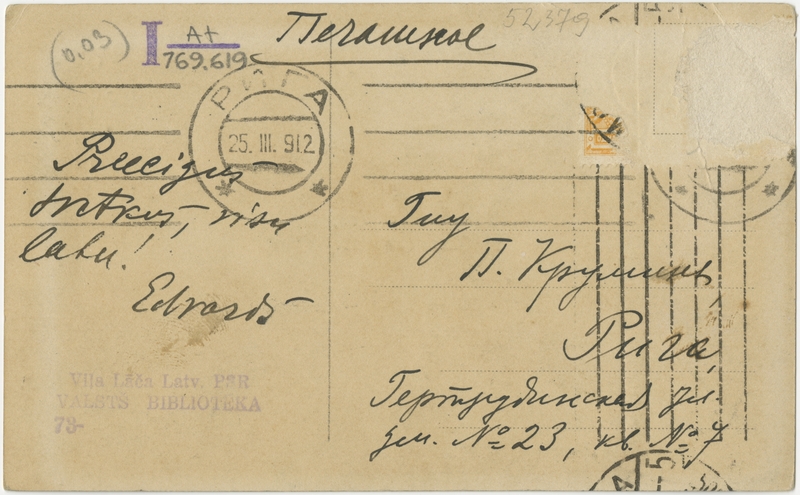 0.03
I At
769.619
52379
Печатное
РИГА
25. III. 912
Preecigus
svetkus, visu
labu!
Edvards
Гну
П. Крумингъ,
Рига,
Гертрудинская ул.
дм. № 23, кв. № 7
Viļa Lāča Latv. PSR
VALSTS BIBLIOTEKA
73-